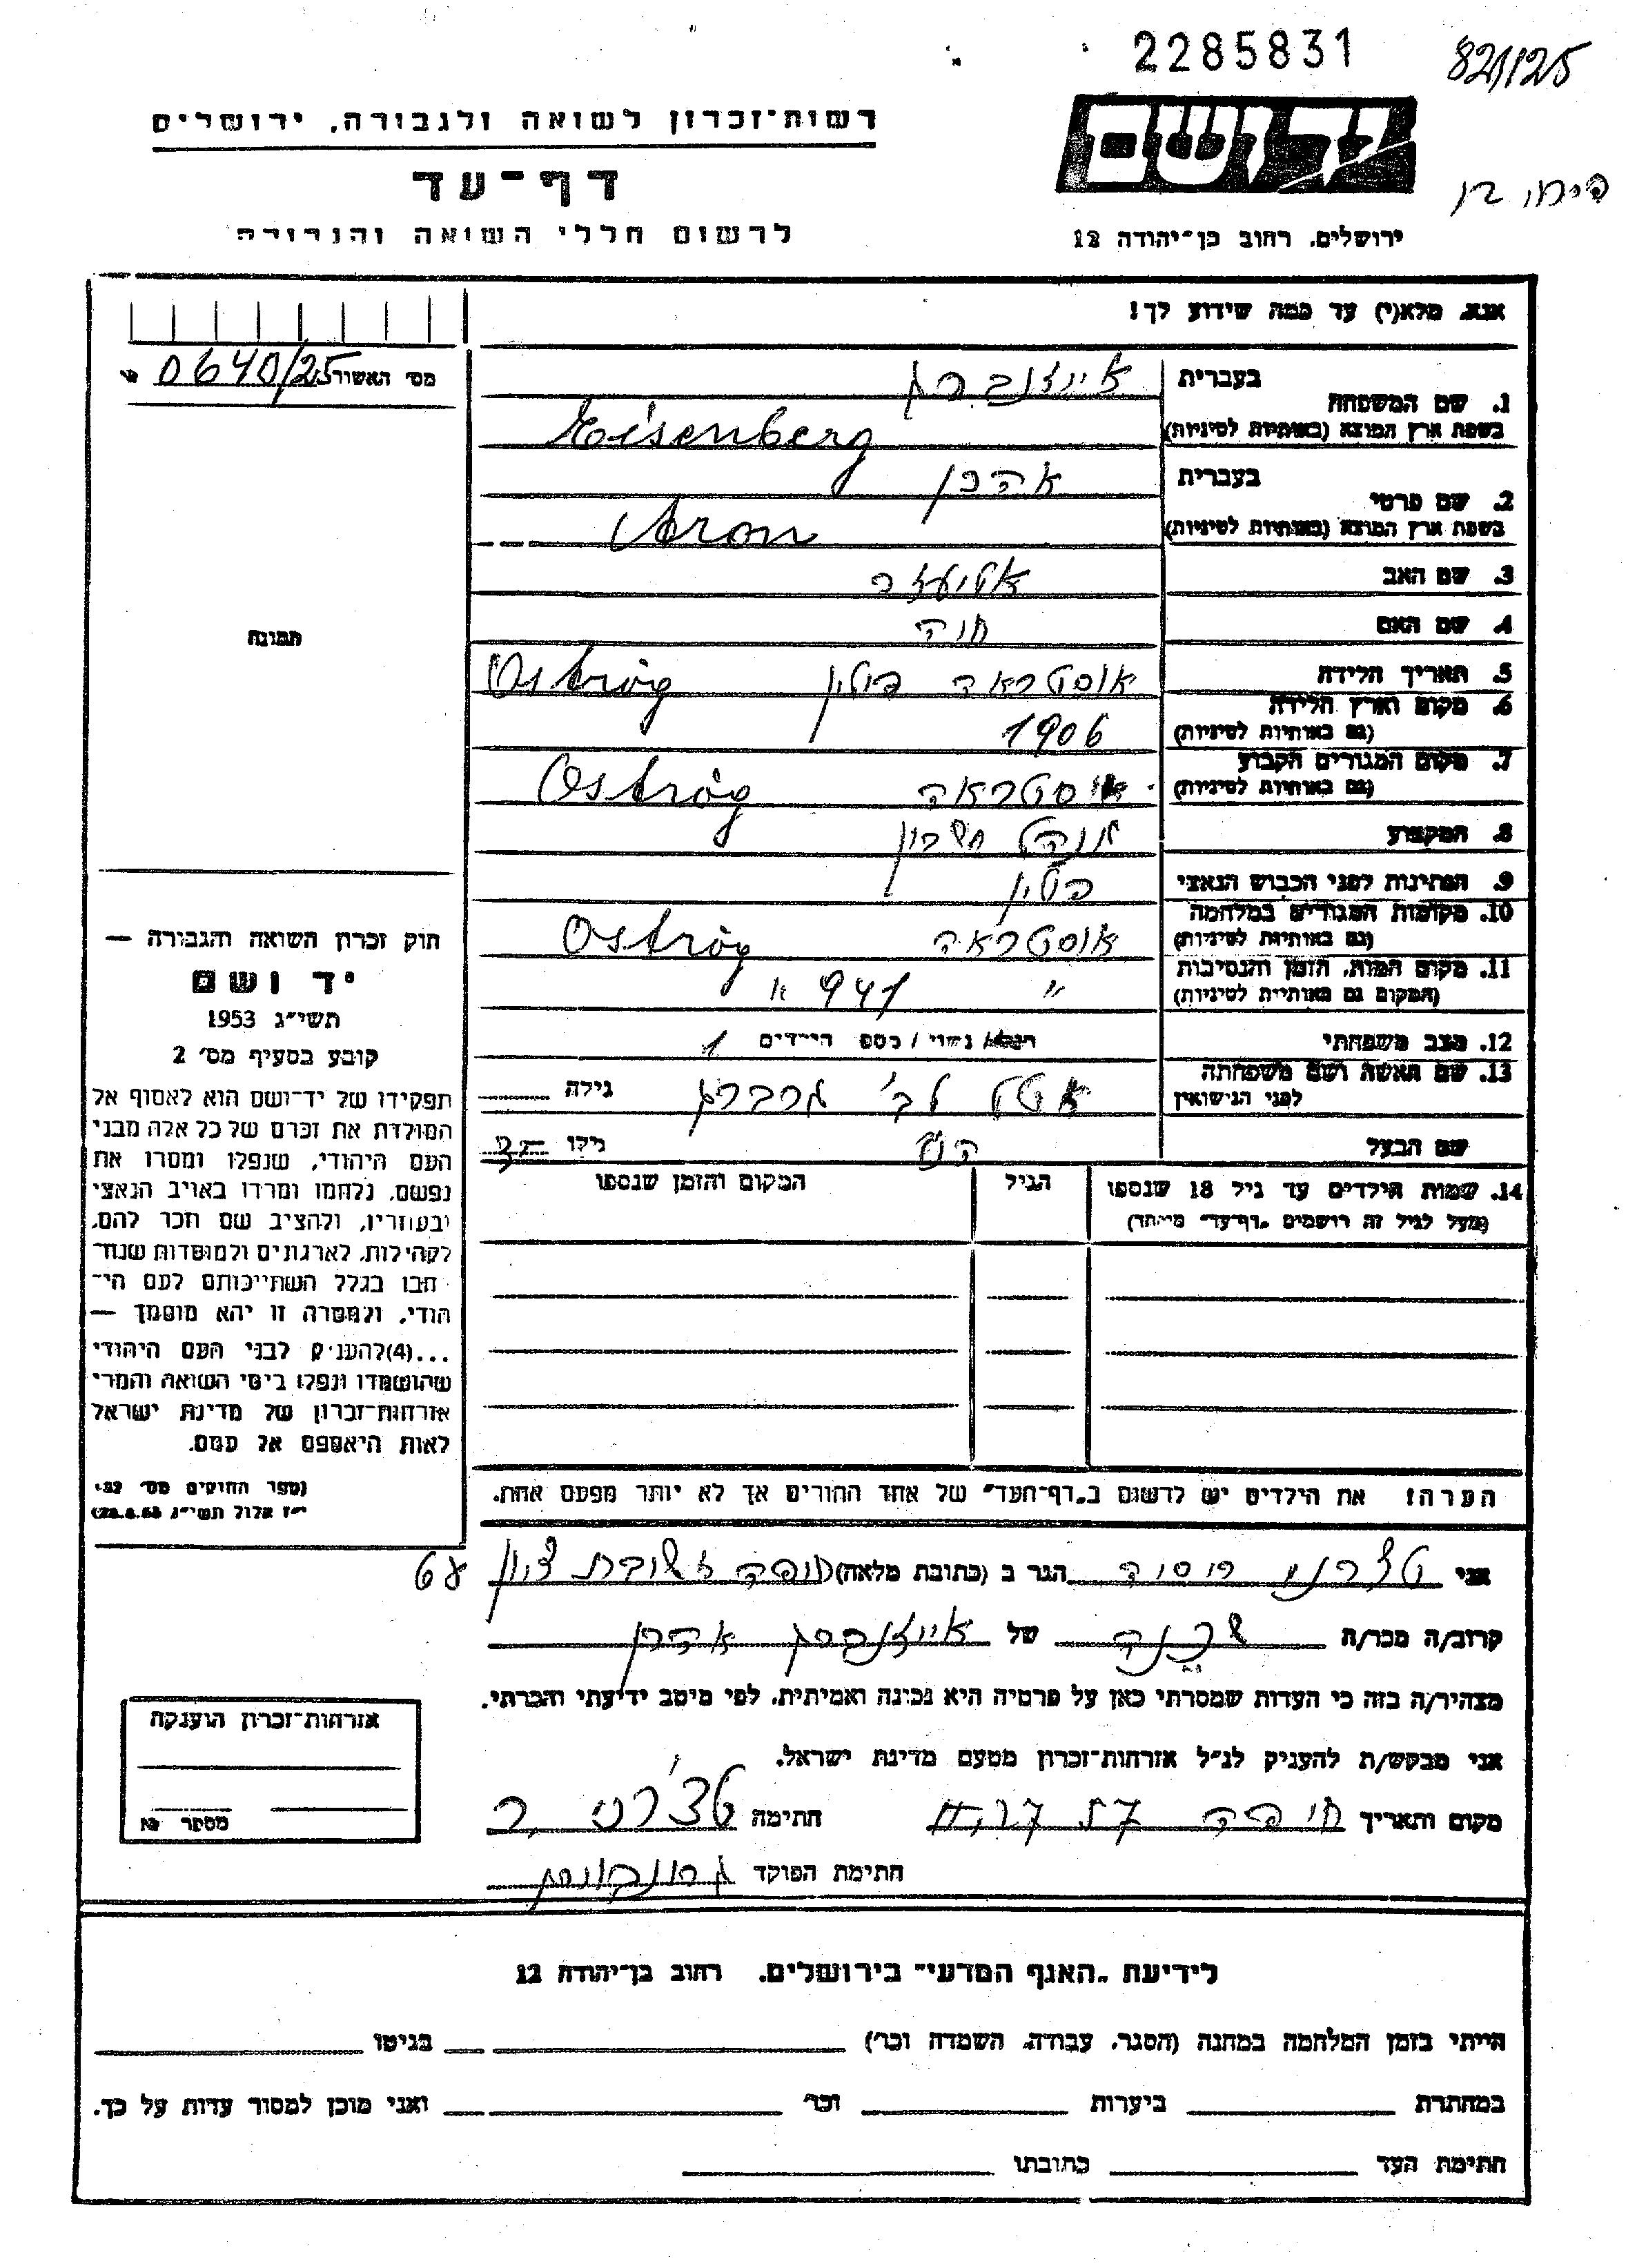 2285831
821/125
רשות־זכרון לשואה ולגבורה, ירושלים
יד ושם
דף־עד
לרשום חללי השואה והגבורה
ירושלים, רחוב בן־יהודה 12
אנא, מלא(י) עד כמה שידוע לך!
מס׳ האשור 0640/25
1. שם המשפחה
בעברית אייזנברג
בשפת ארץ המוצא (באותיות לטיניות) Eisenberg
2. שם פרטי
בעברית אהרן
בשפת ארץ המוצא (באותיות לטיניות) Aron
3. שם האב אליעזר
4. שם האם חוה
5. תאריך הלידה אוסטראה פולין Ostróg
6. מקום וארץ הלידה
(גם באותיות לטיניות) 1906
7. מקום המגורים הקבוע
(גם באותיות לטיניות) אוסטראה Ostróg
8. המקצוע מנהל חשבון
9. הנתינות לפני הכבוש הנאצי פולין
10. מקומות המגורים במלחמה
(גם באותיות לטיניות) אוסטראה Ostróg
11. מקום המות, הזמן והנסיבות
(המקום גם באותיות לטיניות) " 941
12. מצב משפחתי רווק/ נשוי / מספר הילדים 1
13. שם האשה ושם משפחתה
לפני הנישואין אטל לב׳ גרברג גילה
שם הבעל גילו
14. שמות הילדים עד גיל 18 שנספו
(מעל לגיל זה רושמים „דף־עד״ מיוחד)
הגיל
המקום והזמן שנספו
הערה: את הילדים יש לרשום ב„דף־העד״ של אחד ההורים אך לא יותר מפעם אחת.
תמונה
חוק זכרון השואה והגבורה —
יד ושם
תשי״ג 1953
קובע בסעיף מס׳ 2
תפקידו של יד־ושם הוא לאסוף אל
המולדת את זכרם של כל אלה מבני
העם היהודי, שנפלו ומסרו את
נפשם, נלחמו ומרדו באויב הנאצי
ובעוזריו, ולהציב שם וזכר להם,
לקהילות, לארגונים ולמוסדות שנח־
רבו בגלל השתייכותם לעם הי־
הודי, ולמטרה זו יהא מוסמך —
...(4)להעניק לבני העם היהודי
שהושמדו ונפלו בימי השואה והמרי
אזרחות־זכרון של מדינת ישראל
לאות היאספם אל עמם.
(ספר החוקים מס׳ 132,
י״ז אלול תשי״ג 28.8.53)
אני הגר ב (כתובת מלאה) חיפה 68
קרוב/ה מכר/ה שכנה של אייזנברג אהרן
מצהיר/ה בזה כי העדות שמסרתי כאן על פרטיה היא נכונה ואמיתית, לפי מיטב ידיעתי והכרתי.
אני מבקש/ת להעניק לנ״ל אזרחות־זכרון מטעם מדינת ישראל.
מקום ותאריך חיפה חתימה
חתימת הפוקד
אזרחות־זכרון הוענקה
מספר
לידיעת „האגף המדעי״ בירושלים, רחוב בן־יהודה 12
הייתי בזמן המלחמה במחנה (הסגר, עבודה, השמדה וכו׳) בגיטו
במחתרת ביערות וכו׳ ואני מוכן למסור עדות על כך.
חתימת העד כתובתו